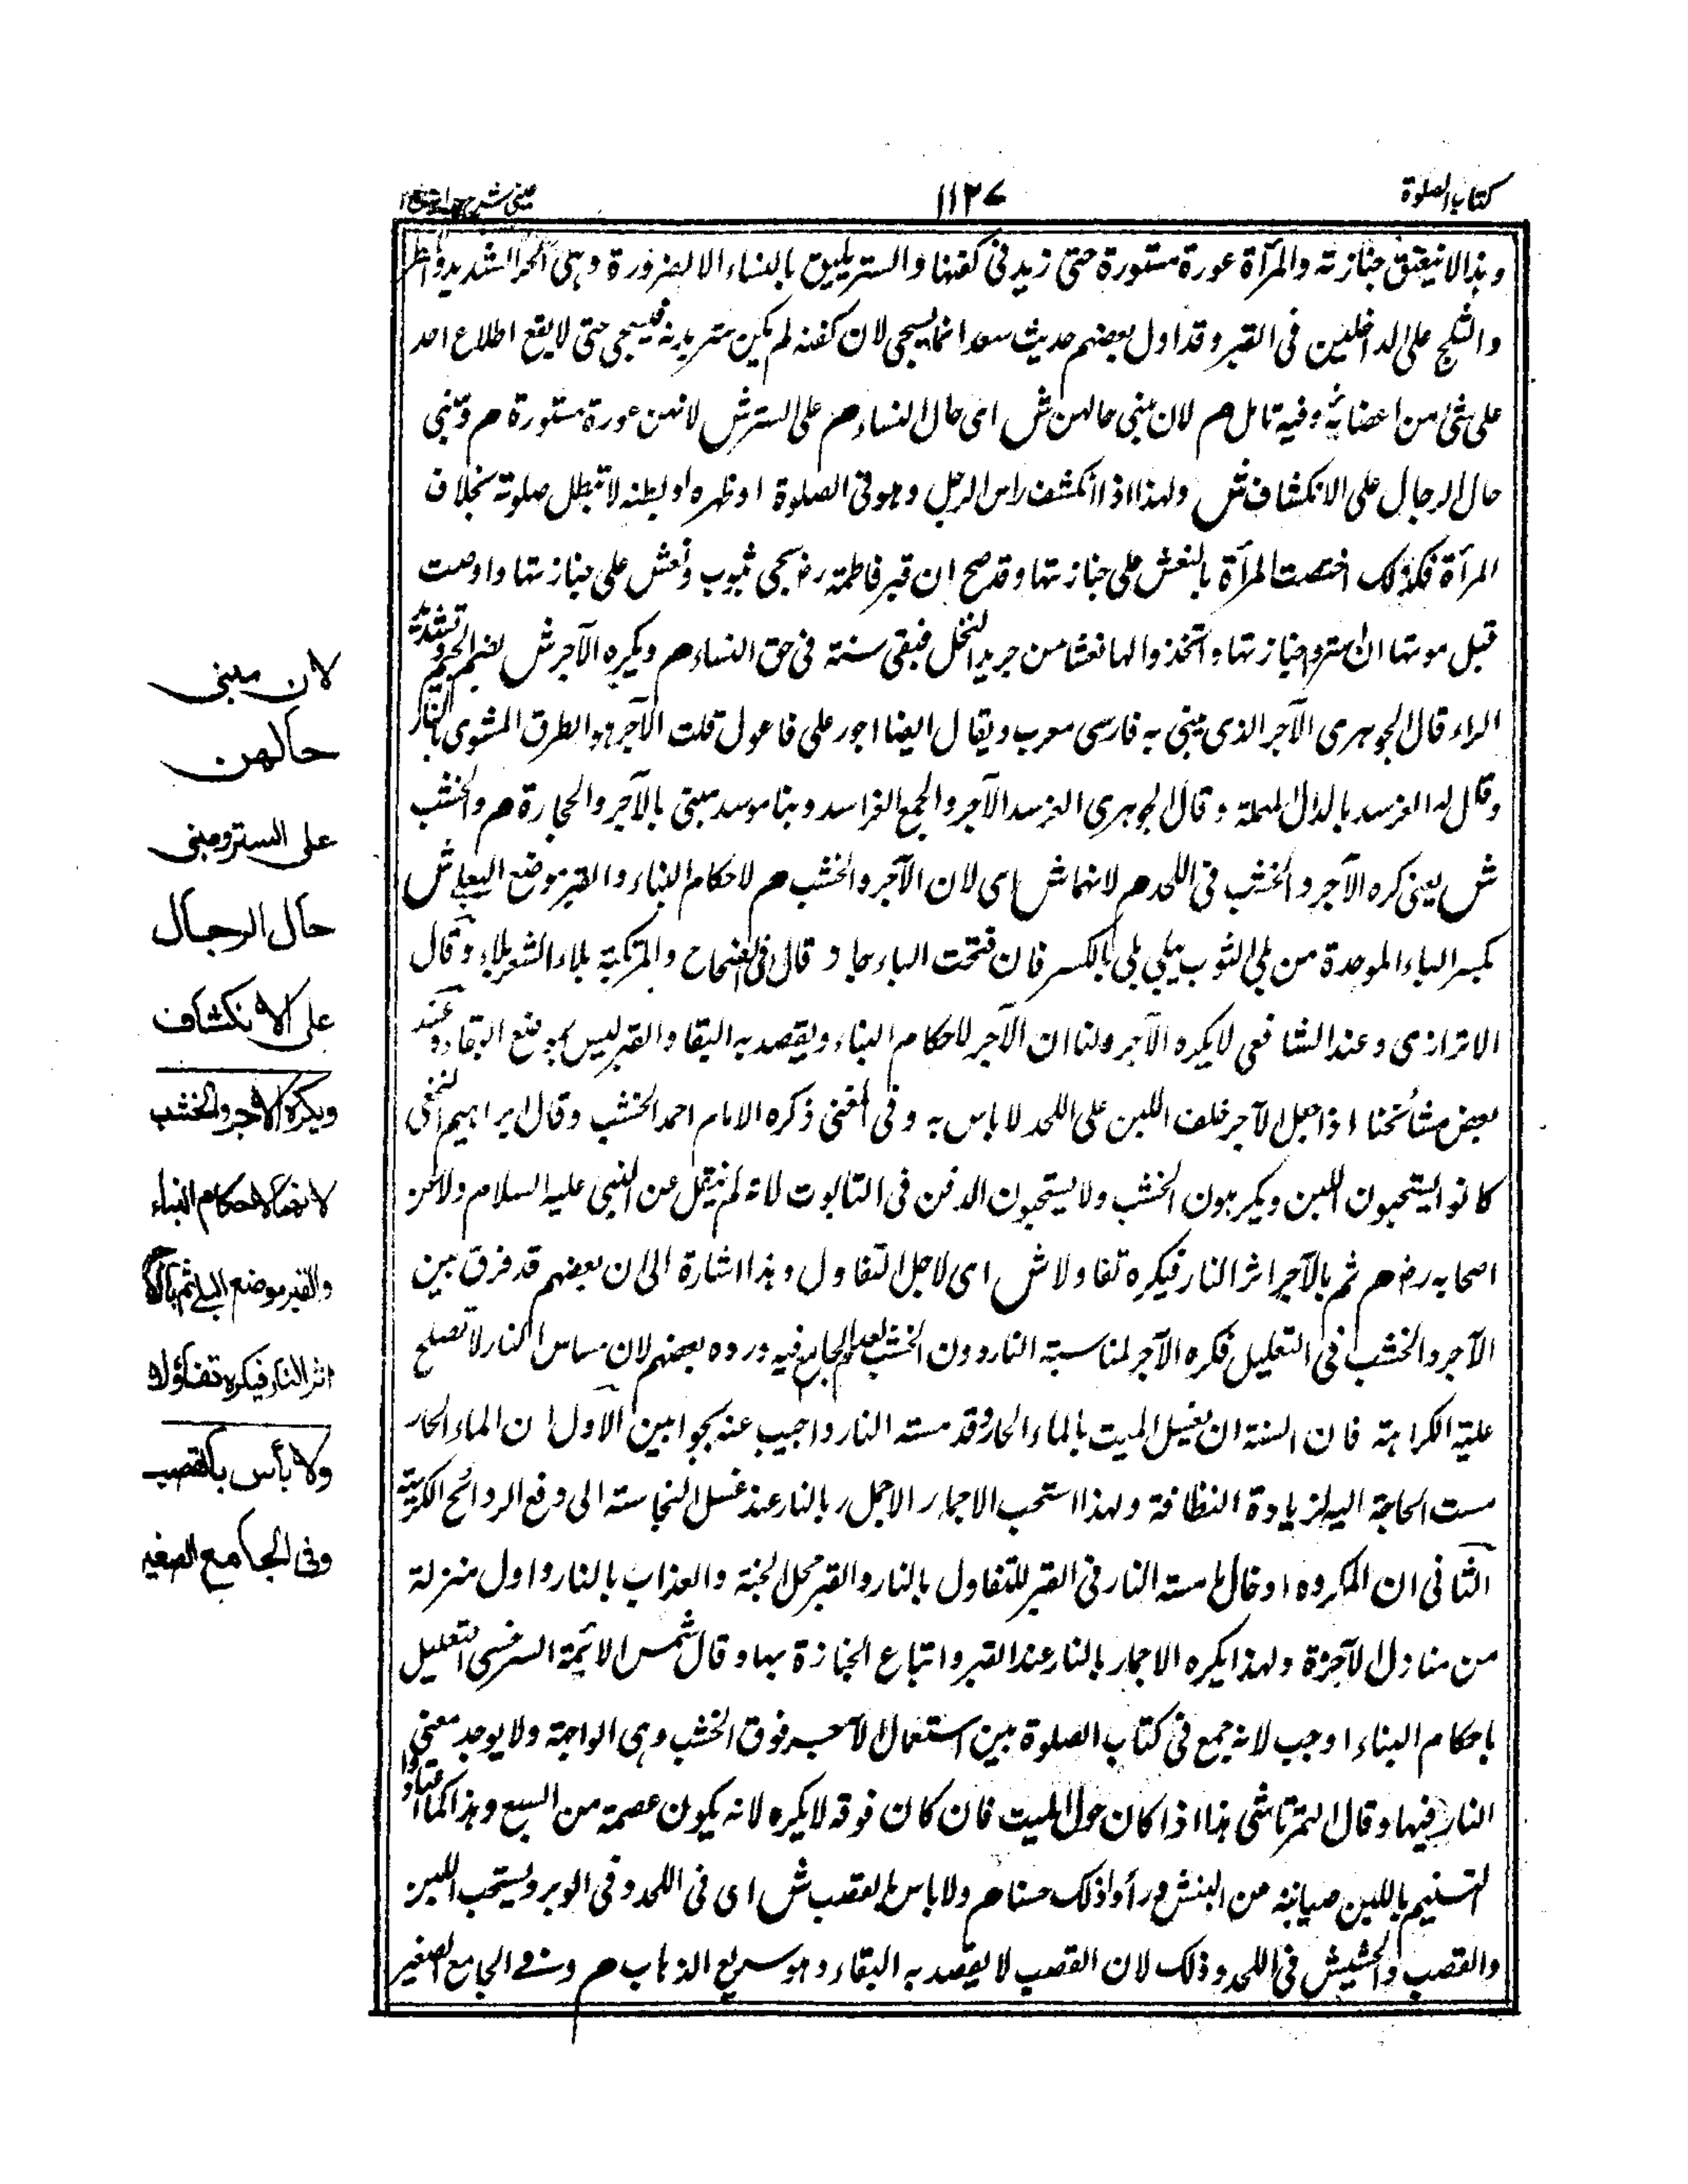 كتاب الصلوة
١١٢٧
عينى شرح هداية ج ١
وهذا لا ينعتق جنازته والمرآة عورة مستورة حتى زيد فى كفنها والستر يليق بالنساء الا لضرورة وهى الحر الشديد والمطر
والثلج على الداخلين فى القبر وقد اول بعضهم حديث سعد انما يسجى لان كفنه لم يكن ستر بدنه فيسجى حتى لا يقع اطلاع احد
على شئ من اعضائه وفيه تامل هم لان مبنى حالهن ش اى حال النساء هم على الستر ش لانهن عورة مستورة هم ومبنى
حال الرجال على الانكشاف ش ولهذا اذا انكشف راس الرجل وهو فى الصلوة او ظهره او بطنه لا تبطل صلوته بخلاف
المرأة فكذلك اختصت المرأة بالنعش على جنازتها وقد صح ان قبر فاطمة رض سجى بثوب ونعش على جنازتها واوصت
قبل موتها ان ستروا جنازتها واتخذوا لها نعشا من جريد النخل فبقى سنة فى حق النساء هم ويكره الآجر ش بضم الجيم وتشديد
الراء قال الجوهرى الآجر الذى يبنى به فارسى معرب ويقال ايضا اجور على فاعول قلت الآجر هو الطرق المشوى بالنار
وقال له الغرسد بالدال المهملة وقال الجوهرى الغرسد الآجر والجمع الغراسد وبناموسد مبنى بالآجر والحجارة هم والخشب
ش يعنى كره الآجر والخشب فى اللحد هم لانهما ش اى لان الآجر والخشب هم لاحكام البناء والقبر موضع البلى ش
بكسر الباء الموحدة من بلى الثوب يبلى بلى بالكسر فان فتحت الباء جا و قال فى الصحاح والمركبة بلاء الشعر بلاء وقال
الاترازى وعند الشافعى لا يكره الآجر ولنا ان الآجر لاحكام البناء ويقصد به البقا والقبر ليس بموضع البقاء وعند
بعض مشائخنا اذا جعل الآجر خلف اللبن على اللحد لا باس به وفى المغنى ذكره الامام احمد الخشب وقال ابراهيم النخعى
كانوا يستحبون اللبن ويكرهون الخشب ولا يستحبون الدفن فى التابوت لانه لم ينقل عن النبى عليه السلام ولا عن
اصحابه رض هم ثم بالآجر اثر النار فيكره تفاولا ش اى لاجل التفاول وهذا اشارة الى ان بعضهم قد فرق بين
الآجر والخشب فى التعليل فكره الآجر لمناسبة النار دون الخشب لعدم الجامع فيه ورده بعضهم لان مساس النار لا تصلح
علية الكراهة فان السنة ان يغسل الميت بالماء الحار وقد مسته النار واجيب عنه بجوابين الاول ان الماء الحار
مست الحاجة اليه لزيادة النظافة ولهذا استحب الاجمار الاجمل بالنار عند غسل النجاسة الى دفع الروائح الكريهة
الثانى ان المكروه ادخال ما مسته النار فى القبر للتفاول بالنار والقبر محل الجنة والعذاب بالنار واول منزلة
من منازل الآخرة ولهذا يكره الاجمار بالنار عند القبر واتباع الجنازة بها وقال شمس الائمة السرخسى التعليل
باحكام البناء اوجب لانه جمع فى كتاب الصلوة بين استعمال الآجر فوق الخشب وهى الواجهة ولا يوجد معنى
النار فيها وقال التمرتاشى هذا اذا كان حول الميت فان كان فوقه لا يكره لانه يكون عصمة من السبع وهذا كما اعتادوا
التسنيم باللبن صيانة من النبش ورأوا ذلك حسنا هم ولا باس بالقصب ش اى فى اللحد وفى الوبر ويستحب اللبن
والقصب والحشيش فى اللحد وذلك لان القصب لا يقصد به البقاء وهو سريع الذهاب هم وفى الجامع الصغير
لان مبنى
حالهن
على الستر ومبنى
حال الرجال
على الانكشاف
ويكره الآجر والخشب
لانهما لاحكام البناء
والقبر موضع البلى ثم بالآجر
اثر النار فيكره تفاؤلا
ولا بأس بالقصب
وفى الجامع الصغير